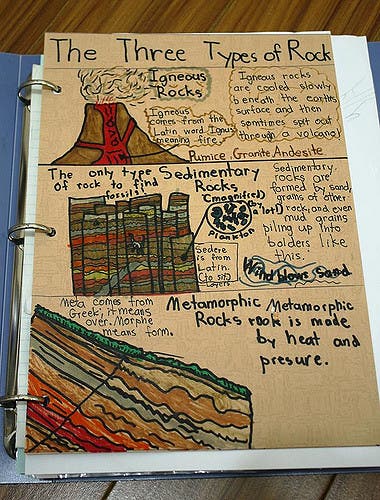 The Three Types of Rock
Igneous
Rocks
Igneous
comes from the
Latin word Ignus
meaning fire.
Igneous rocks
are cooled slowly
beneath the earths
surface and then
somtimes spit out
through a volcano!
Pumice, Granite, Andesite
The only type
of rock to find
fossils!
Sedimentary
Rocks
(magnified)
(by
a lot!)
Plankton
Sedere
is from
Latin.
(to sit)
Layers
Sedimentary
rocks are
formed by sand,
grains of other
rock, and even
mud grains
piling up into
bolders like
this.
Wind blown Sand
Meta comes from
Greek, it means
over. Morphe
means form.
Metamorphic
Rocks
Metamorphic
rook is made
by heat and
presure.